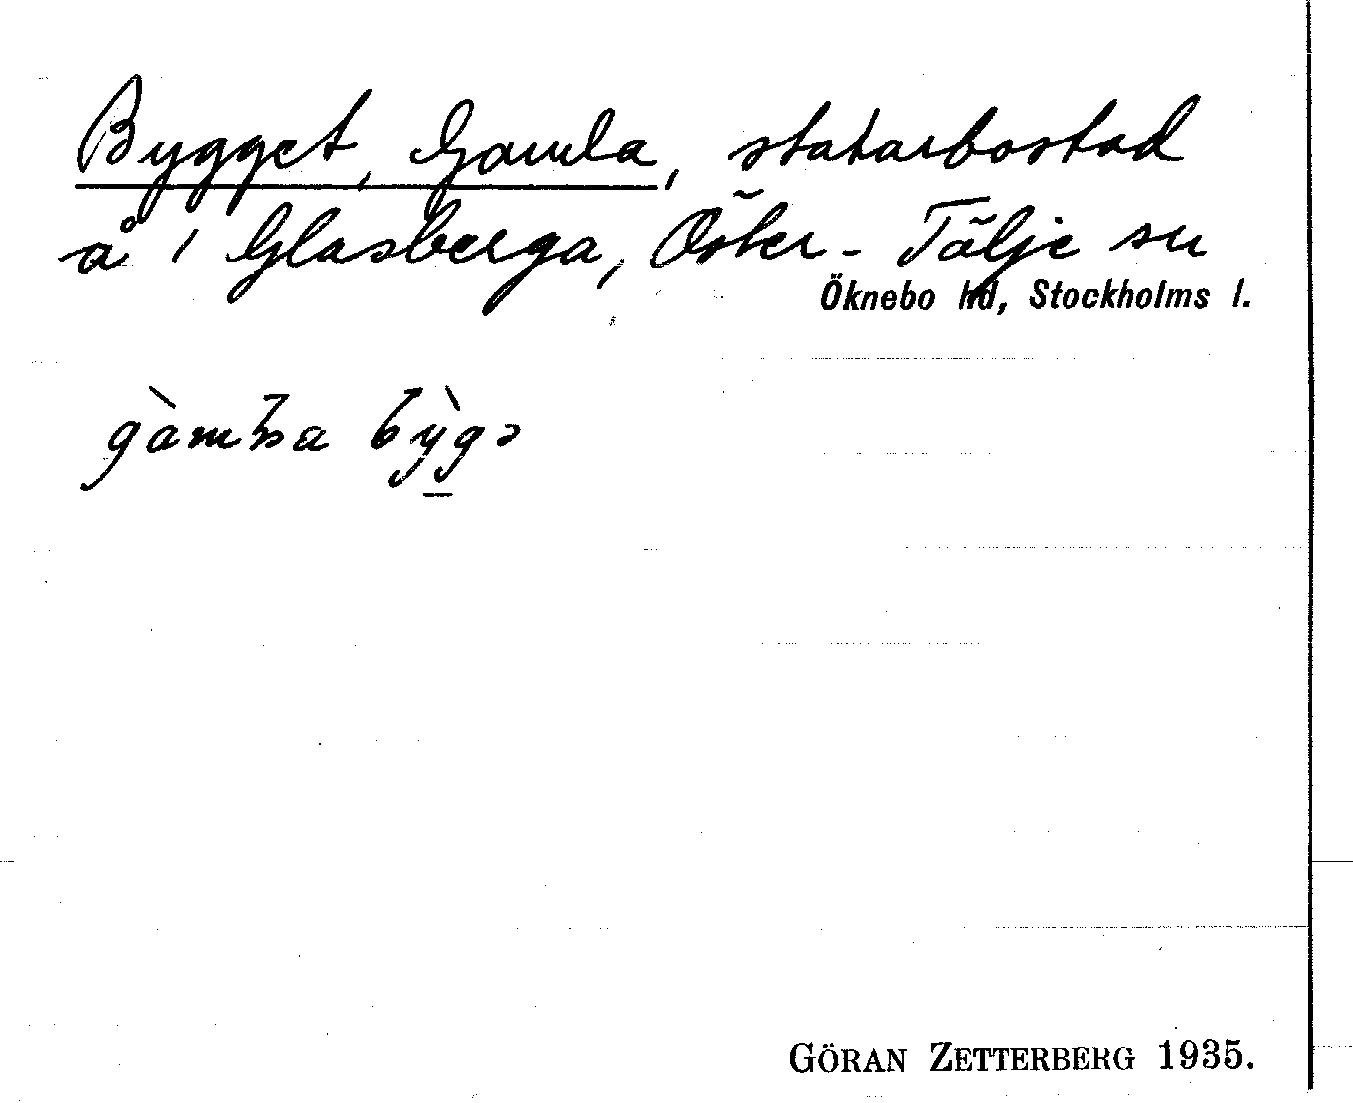 Bygget, Gamla, statarbostad
å 1 Glasberga, Öster-Tälje sn
Öknebo hd, Stockholms l.
GÖRAN ZETTERBERG 1935.